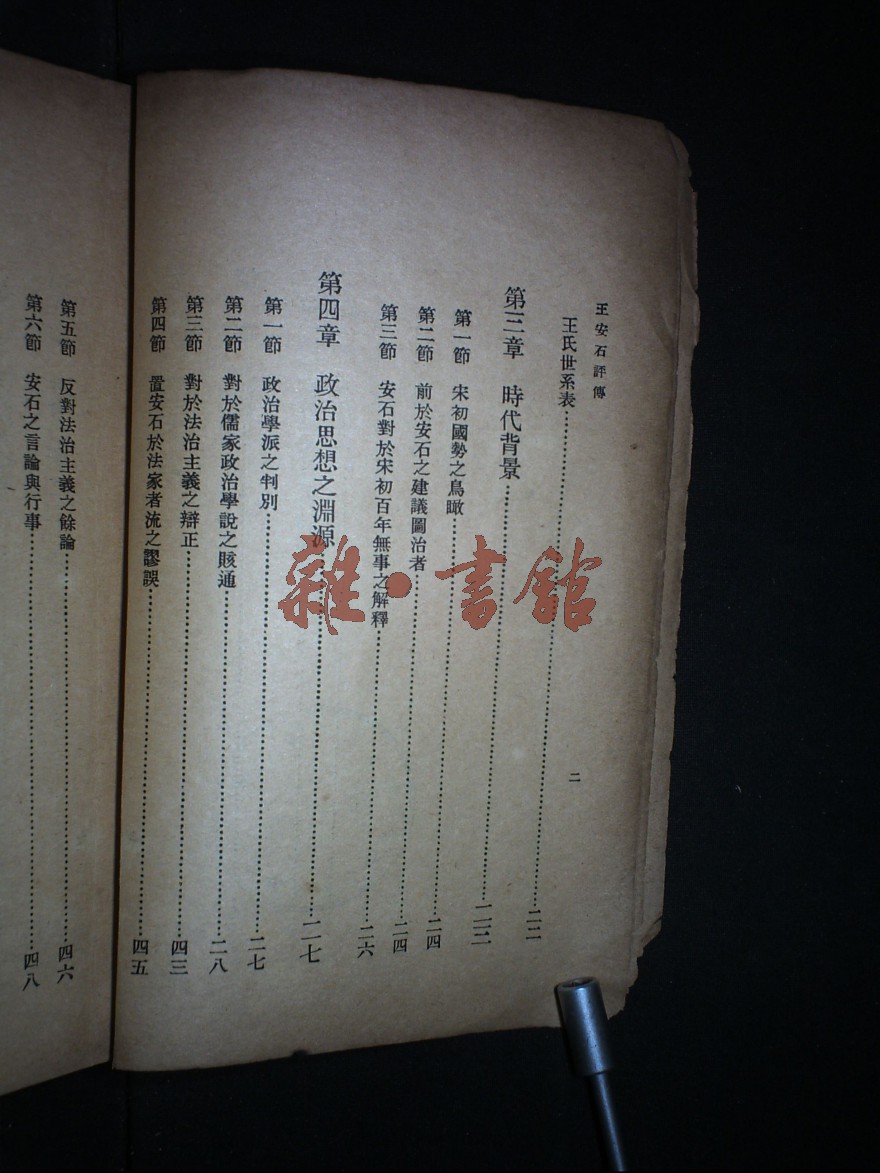 王安石評傳
二
王氏世系表……二二
第三章 時代背景……二三
第一節 宋初國勢之鳥瞰……二四
第二節 前於安石之建議圖治者……二四
第三節 安石對於宋初百年無事之解釋……二六
第四章 政治思想之淵源……二七
第一節 政治學派之判別……二七
第二節 對於儒家政治學說之賅通……二八
第三節 對於法治主義之辯正……四三
第四節 置安石於法家者流之謬誤……四五
第五節 反對法治主義之餘論……四六
第六節 安石之言論與行事……四八
雜·書館